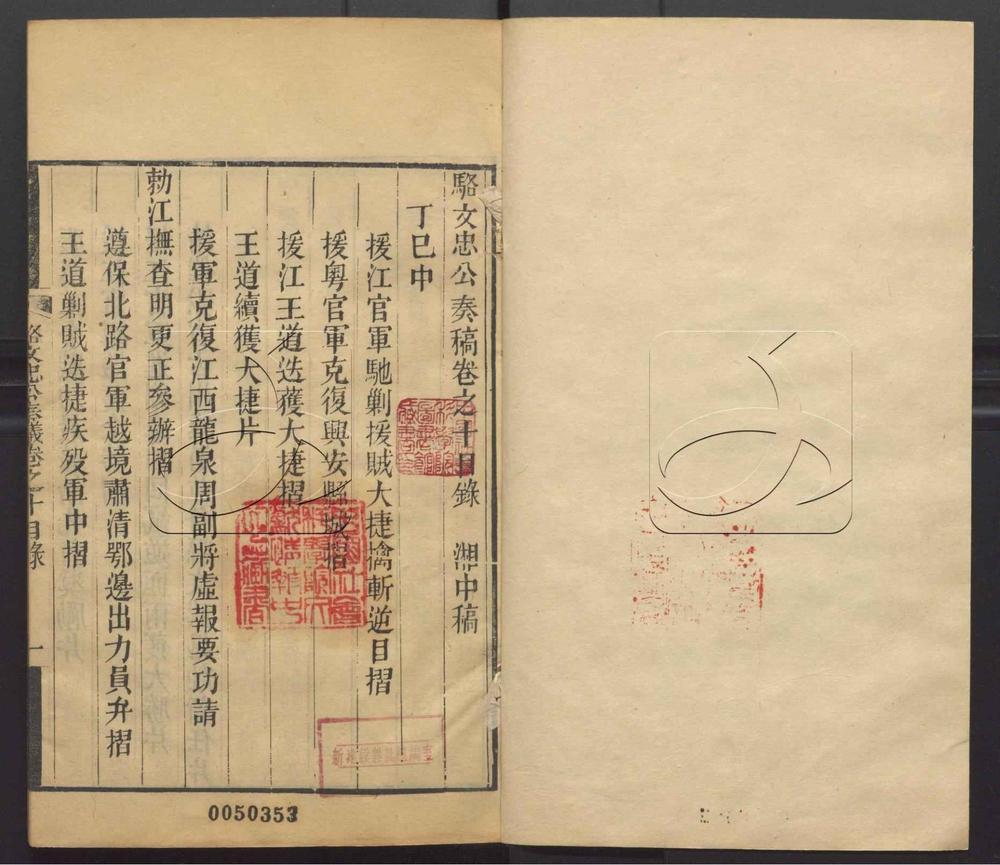 駱文忠公奏稿卷之十目錄 湘中稿
丁巳中
援江官軍馳剿援賊大捷擒斬逆目摺
援粵官軍克復興安縣城摺
援江王道迭獲大捷摺
王道續獲大捷片
援軍克復江西龍泉周副將虛報要功請
勅江撫查明更正參辦摺
遵保北路官軍越境肅清鄂邊出力員弁摺
王道剿賊迭捷疾歿軍中摺
駱文忠公奏議卷之十目錄 一
0050353